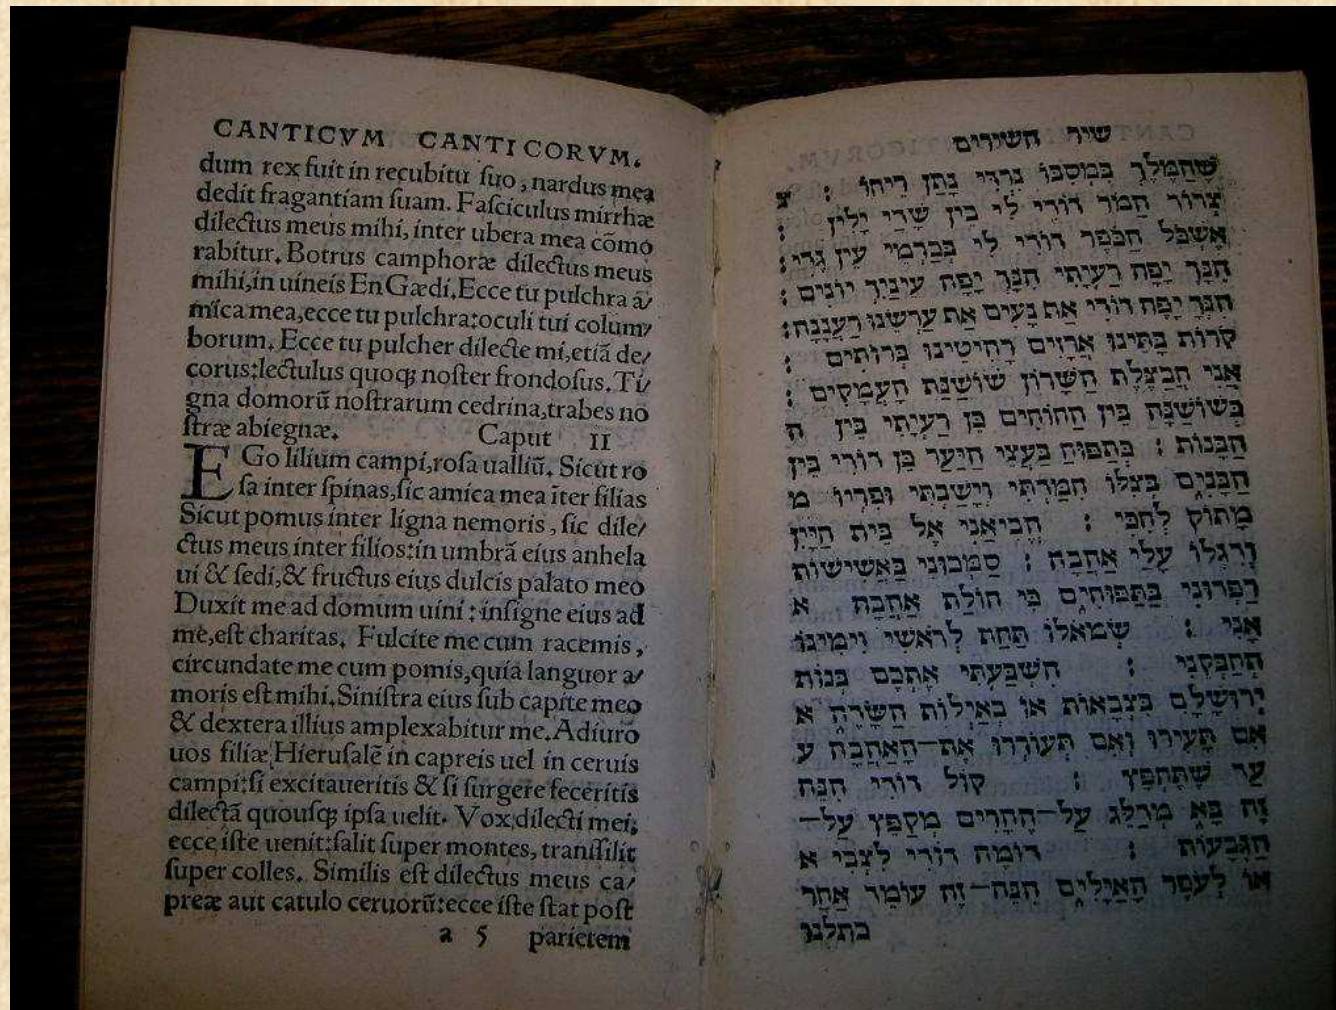 CANTICVM CANTICORVM.
dum rex fuit in recubitu ſuo, nardus mea
dedit fragantiam ſuam. Faſciculus mirrhæ
dilectus meus mihi, inter ubera mea cōmo
rabitur. Botrus camphoræ dilectus meus
mihi, in uineis En Gædi. Ecce tu pulchra a/
mica mea, ecce tu pulchra: oculi tui colum/
borum. Ecce tu pulcher dilecte mi, etiā de/
corus: lectulus quoqꝫ noſter frondoſus. Ti/
gna domorū noſtrarum cedrina, trabes no
ſtræ abiegnæ. Caput II
EGo lilium campi, roſa ualliū. Sicut ro
ſa inter ſpinas, ſic amica mea īter filias
Sicut pomus inter ligna nemoris, ſic dile/
ctus meus inter filios: in umbrā eius anhela
ui & ſedi, & fructus eius dulcis palato meo
Duxit me ad domum uini: inſigne eius ad
me, eſt charitas. Fulcite me cum racemis,
circundate me cum pomis, quia languor a/
moris eſt mihi. Siniſtra eius ſub capite meo
& dextera illius amplexabitur me. Adiuro
uos filiæ Hieruſalē in capreis uel in ceruis
campi: ſi excitaueritis & ſi ſurgere feceritis
dilectā quouſqꝫ ipſa uelit. Vox dilecti mei,
ecce iſte uenit: ſalit ſuper montes, tranſilit
ſuper colles. Similis eſt dilectus meus ca/
preæ aut catulo ceruorū: ecce iſte ſtat poſt
a 5 parietem
שיר השירים
שהמלך במסבו נרדי נתן ריחו : צ
צרור המר דודי לי בין שדי ילין :
אשכל הכפר דודי לי בכרמי עין גדי :
הנך יפה רעיתי הנך יפה עיניך יונים :
הנך יפה דודי את נעים את ערשנו רעננה :
קרות בתינו ארזים רחיטינו ברותים :
אני חבצלת השרון שושנת העמקים :
כשושנה בין החוחים כן רעיתי בין ה
הבנות : כתפוח בעצי היער כן דודי בין
הבנים בצלו חמדתי וישבתי ופריו מ
מתוק לחכי : הביאני אל בית היין
ודגלו עלי אהבה : סמכוני באשישות
רפדוני בתפוחים כי חולת אהבה א
אני : שמאלו תחת לראשי וימינו
תחבקני : השבעתי אתכם בנות
ירושלם בצבאות או באילות השדה א
אם תעירו ואם תעוררו את־האהבה ע
עד שתחפץ : קול דודי הנה
זה בא מדלג על־ההרים מקפץ על־
הגבעות : דומה דודי לצבי א
או לעפר האילים הנה־זה עומד אחר
כתלנו